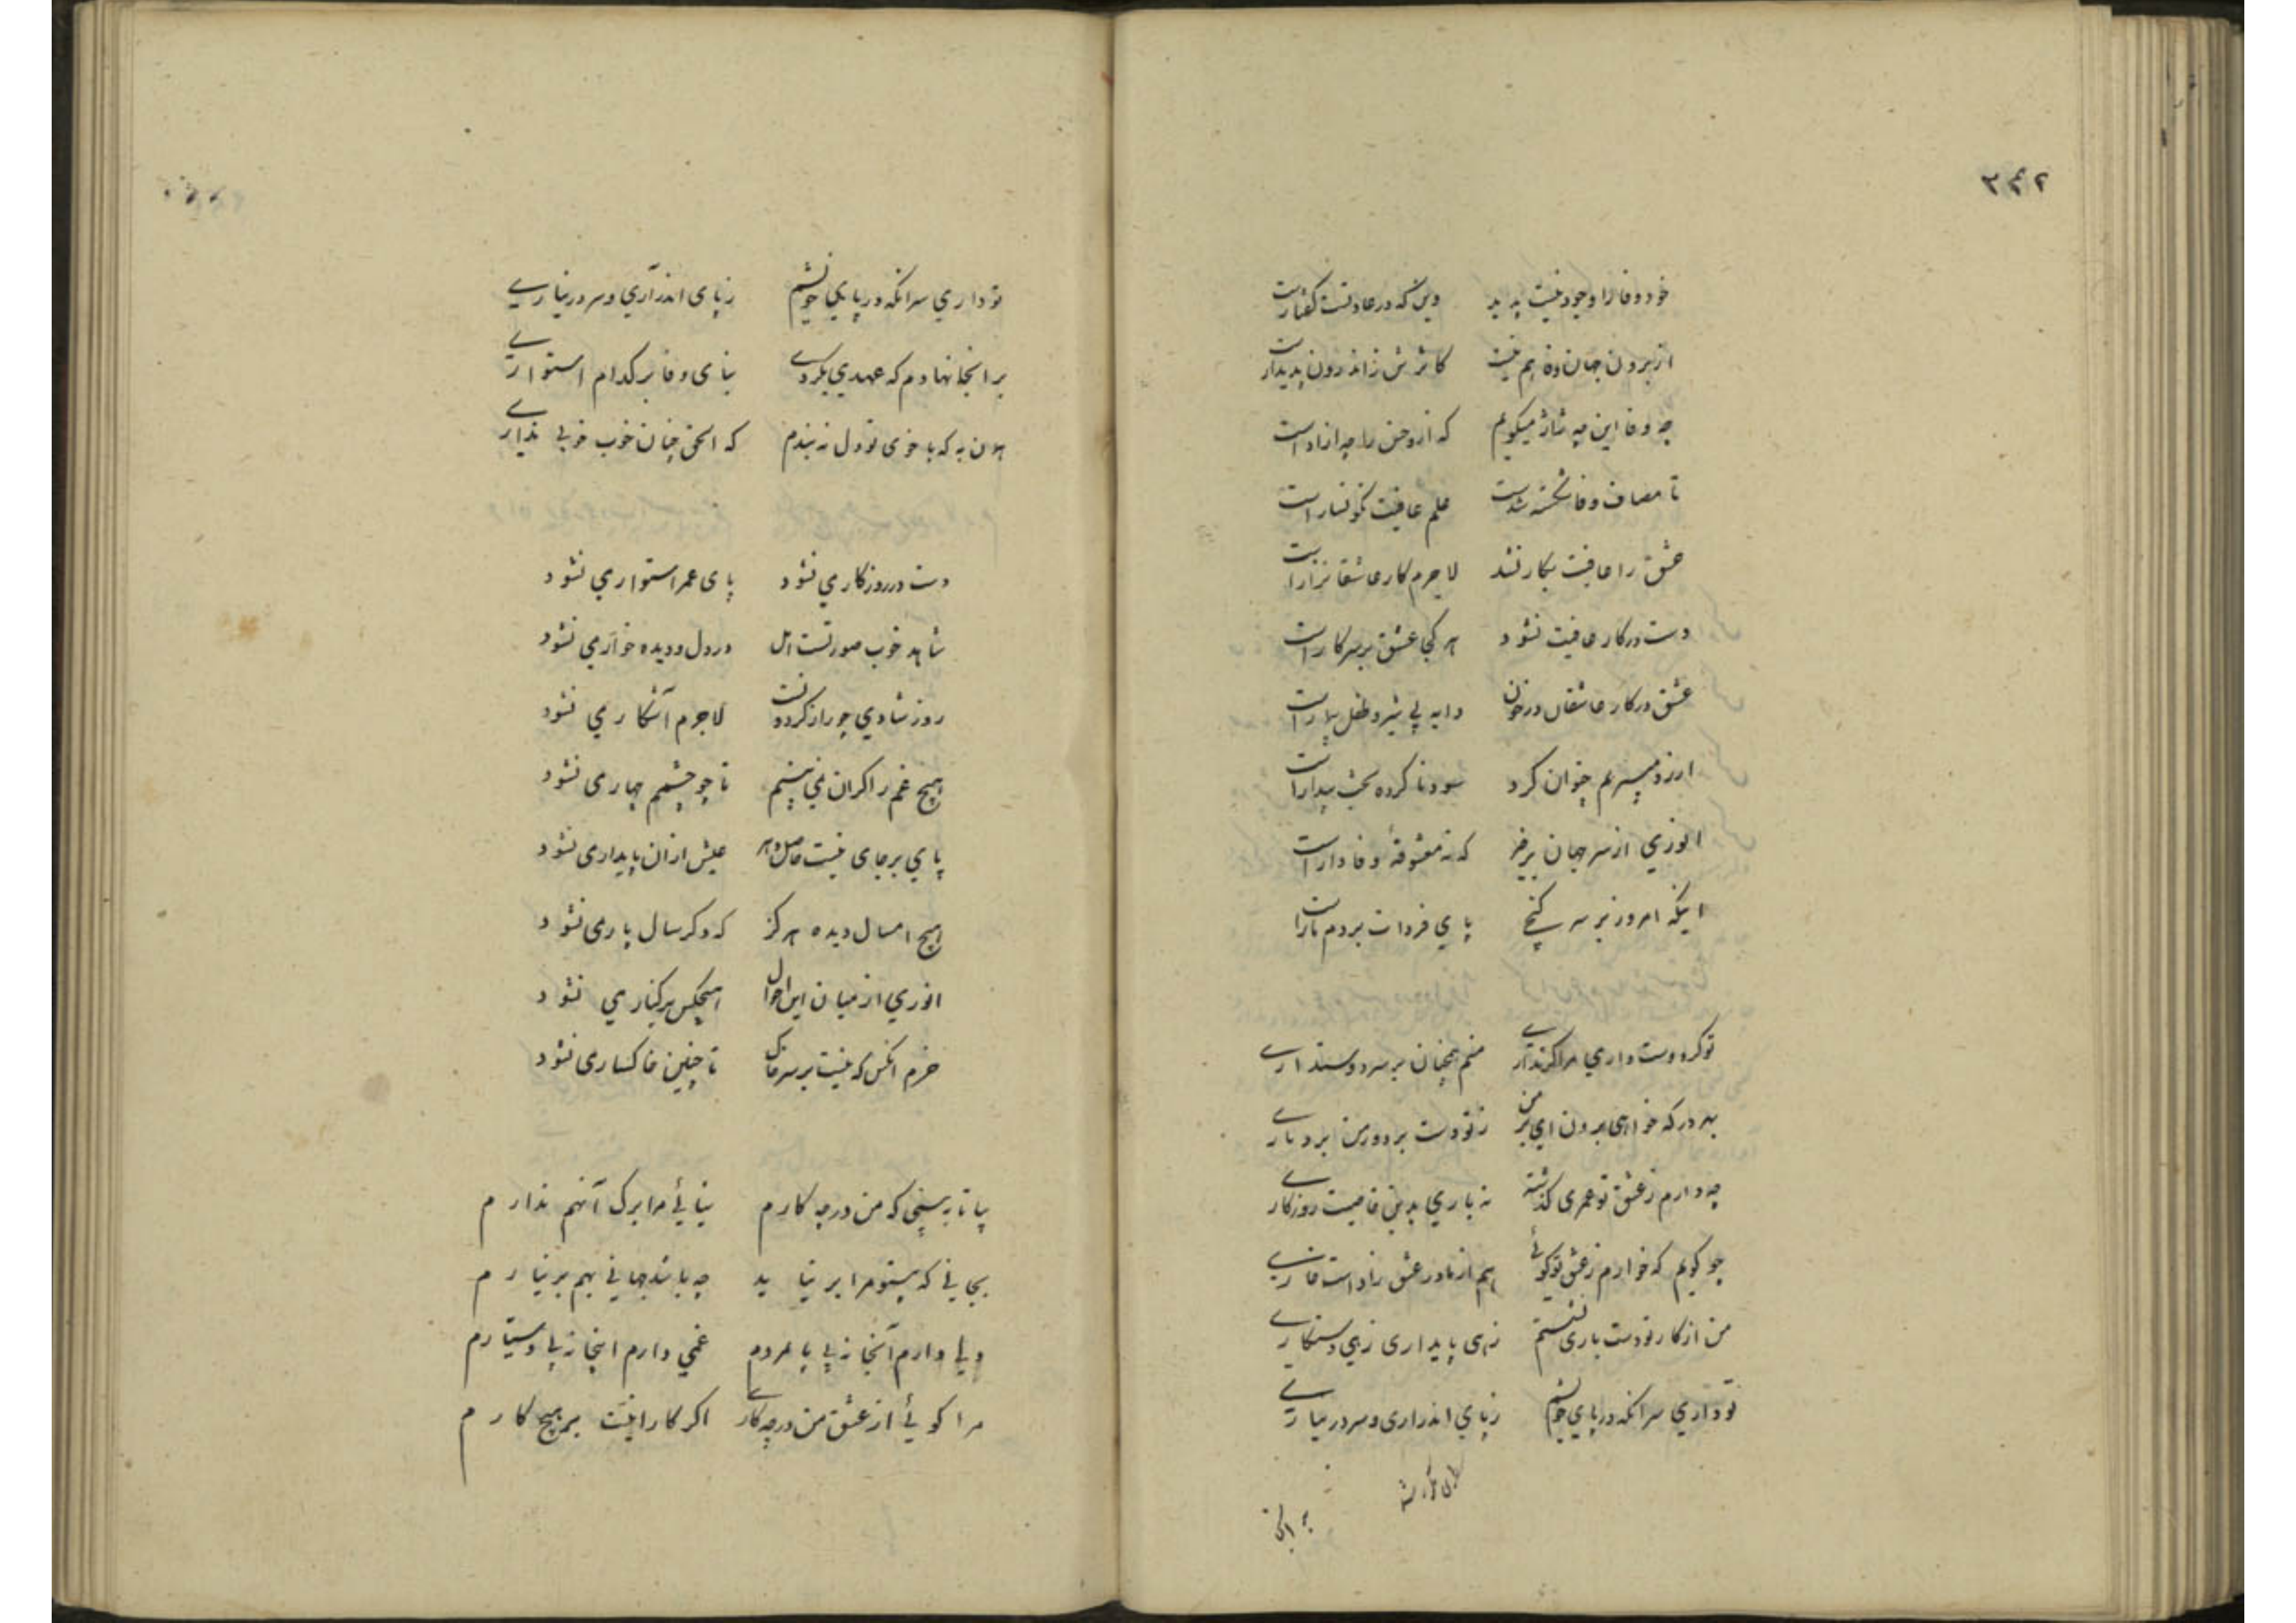 ۳۴۲
خود وفا را وجود نیست پدید وین که در عادتست گفتارست
از برون جهان وفا هم نیست کاثرش ز اندرون پدیدارست
چه وفا این چه ژاژ میگویم که ازو حسن را چه ازاراست
تا مصاف وفا شکسته شدست علم عافیت نگونسار است
عشق را عافیت بکار نشد لاجرم کار عاشقان زار است
دست در کار عافیت نشود هر کجا عشق بر سر کار است
عشق در کار عاشقان در خون دایه بی شیر و طفل بیمار است
ارزو میپزیم چتوان کرد سود ناکرده سخت بسیار است
انوری از سر جهان برخیز که نه معشوقهٔ وفادار است
اینکه امروز بر سر گنجی پای فردات بر دم مار است
تو گر دوست داری مرا گر نداری منم همچنان بر سر دوستداری
بهر در که خواهی برون ای بر من ز تو دست بردن ز من بردباری
چه دارم ز عشق تو عمری گذشته نه باری بدین قافیت روزگاری
چو گویم که خوارم ز عشق تو گوئی هم از مادر عشق زادست خواری
من از کار تو دست باری نشستم زهی پایداری زهی دستکاری
تو داری سر انکه در پای خویشم ز پای اندر اری و سر در نیاری
تو داری سر انکه در پای خویشم ز پای اندر آری و سر در نیاری
بر انجا نهادم که عهدی بکردی بنای وفا بر کدام استواری
همان به که با خوی تو دل نه بندم که الحق چنان خوب خوئی نداری
دست در روزگاری نشود پای عمر استواری نشود
شاهد خوب صورتست امل در دل و دیده خواری نشود
روز شادی چو راز گردونست لاجرم آشکاری نشود
هیچ غم را کران نمی بینم تا چو چشمم چهاری نشود
پای برجای نیست حاصل دهر عیش از ان پایداری نشود
هیچ امسال دیده هرگز که دگر سال پاری نشود
انوری از میان این احوال هیچکس بر کناری نشود
خرم انکس که نیست بر سر خاک تا چنین خاکساری نشود
بیا تا ببینی که من در چه کارم نیائی مرا برگ آنهم ندارم
بجانی که بیتو مرا بر نیاید چه باشد جهانی بهم بر نیارم
دلی دارم آنجا نه بی پایمردم غمی دارم اینجا نه بی دستیارم
مرا گوئی از عشق من در چه کاری اگر کار اینست بر هیچ کارم